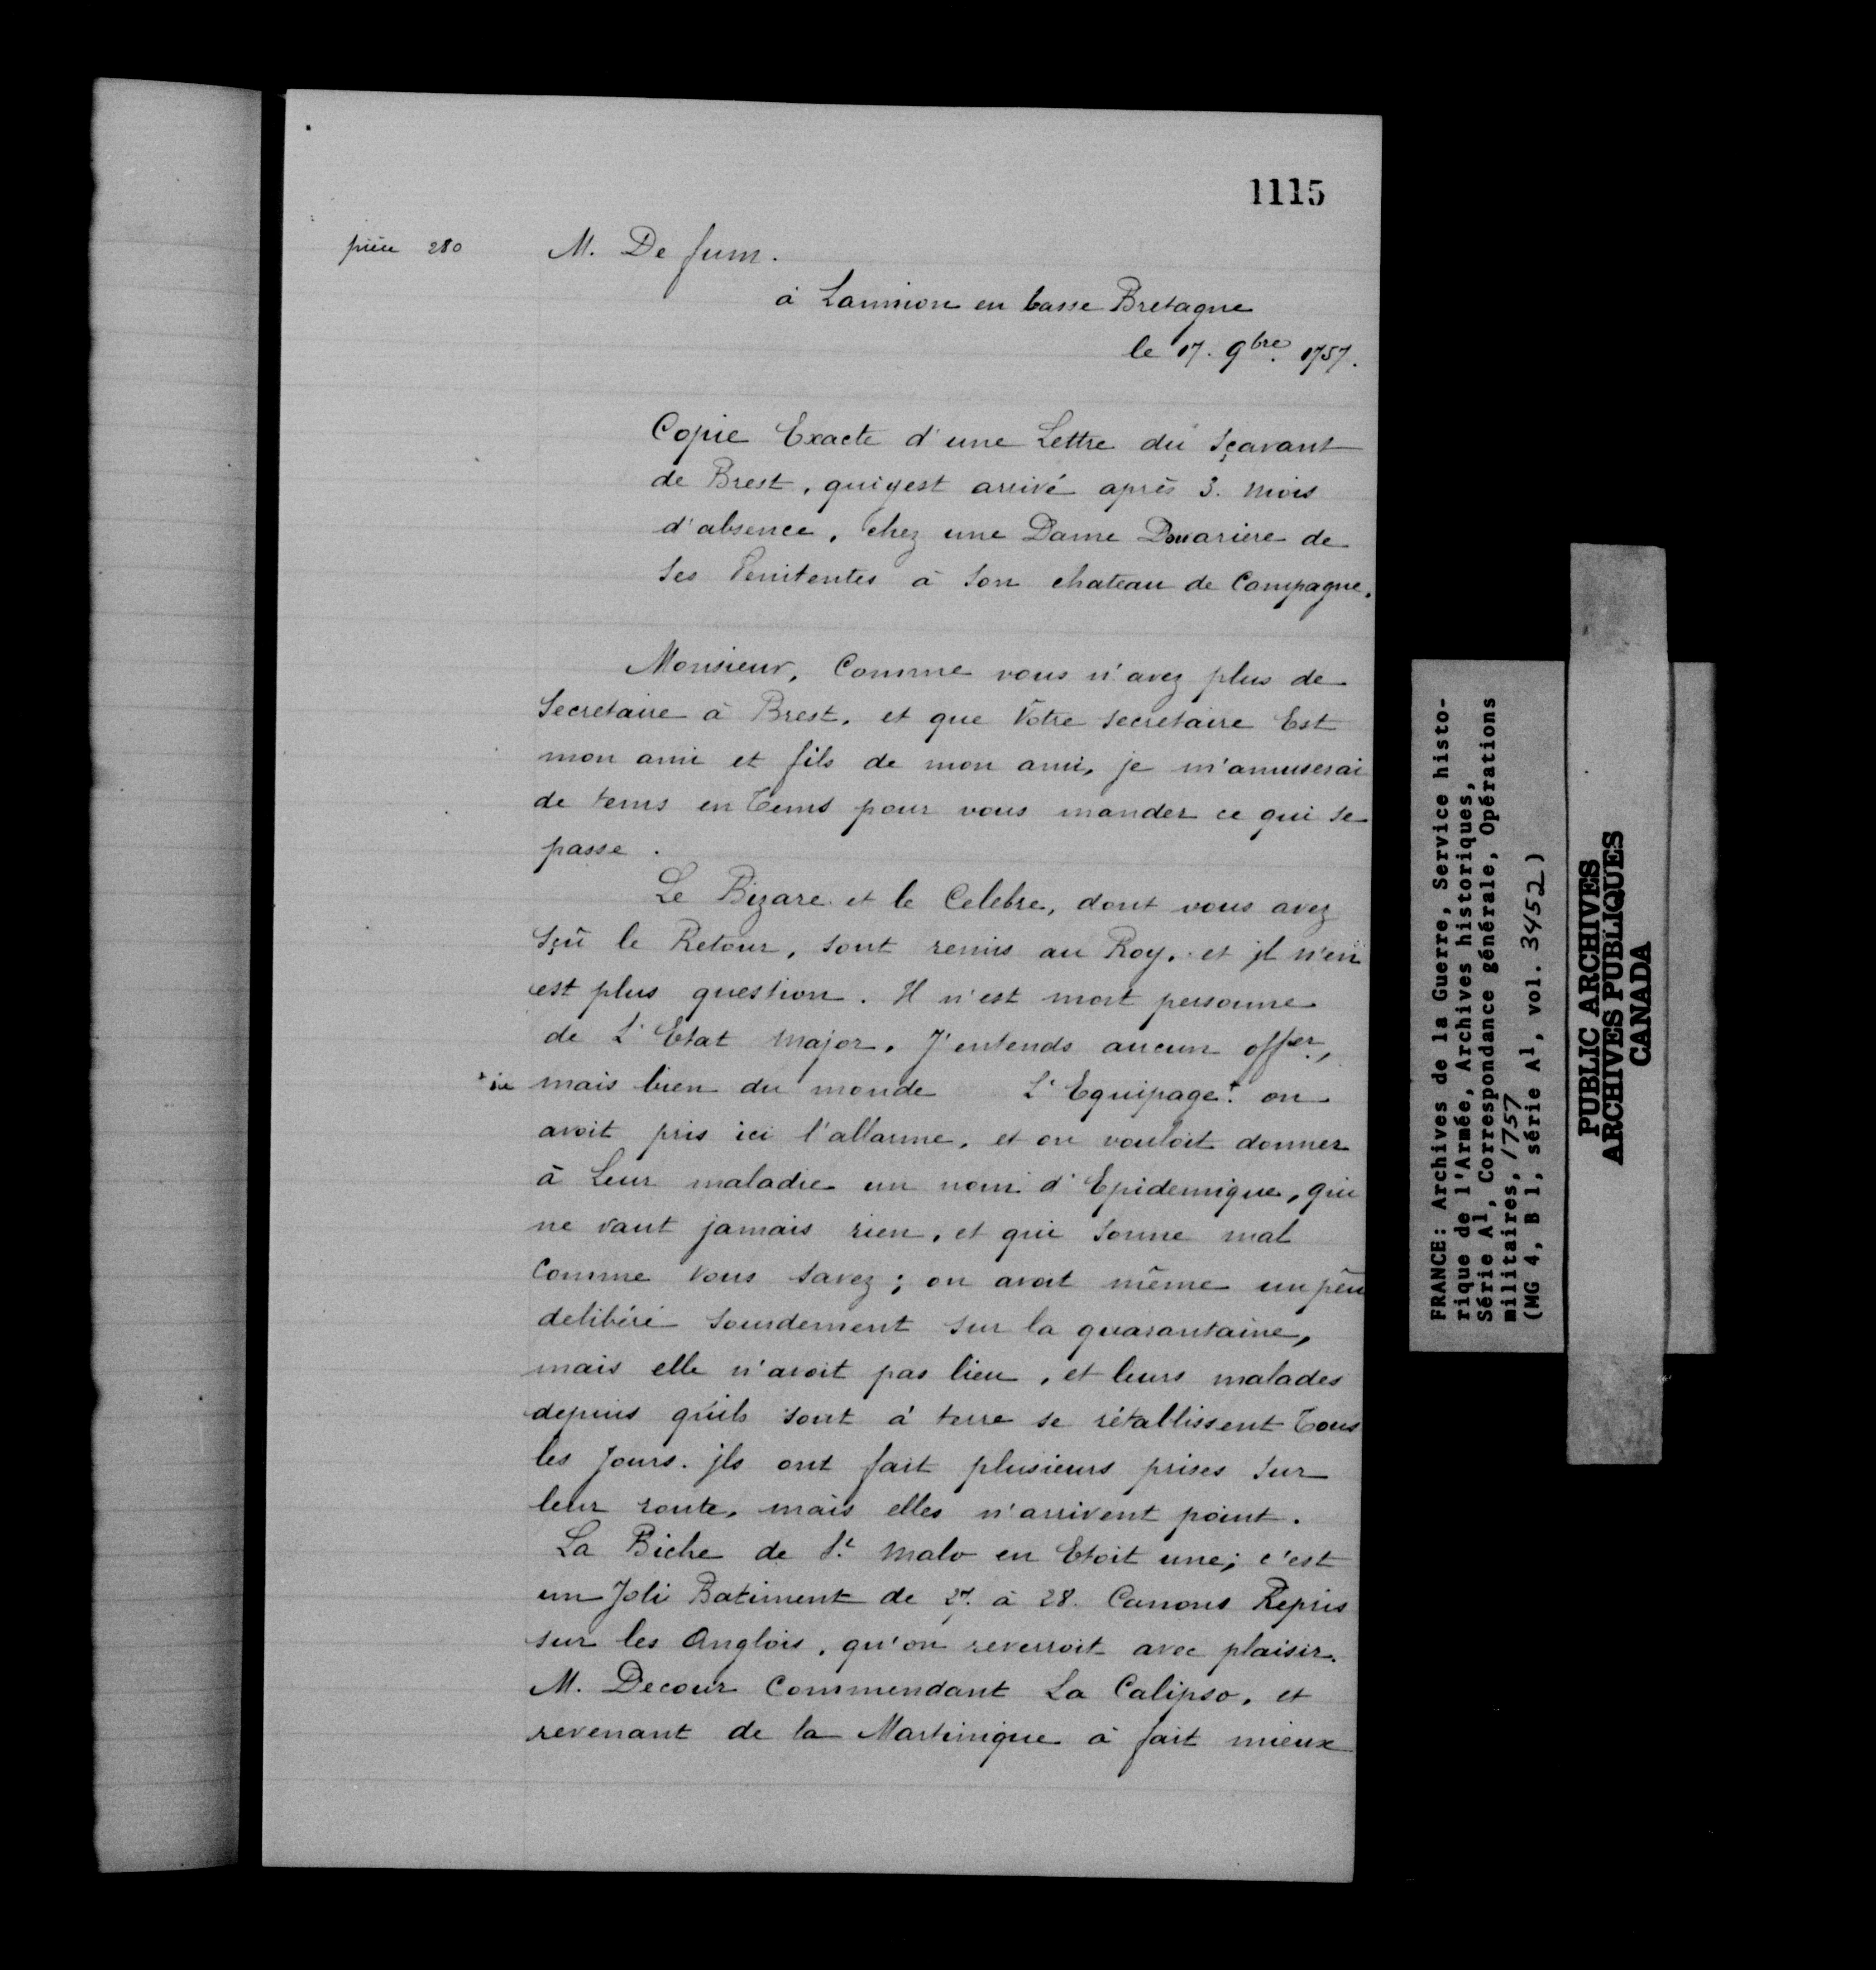 1115
pièce 280
M. De fum.
à Lannion en basse Bretagne
le 17. 9bre. 1757.
Copie Exacte d'une Lettre du Sçavant
de Brest, qui y est arrivé après 3. mois
d'absence, chez une Dame Douariere de
ses Penitentes à son chateau de Campagne.
Monsieur, Comme vous n'avez plus de
Secretaire à Brest, et que Votre secretaire Est
mon ami et fils de mon ami, je m'amuserai
de tems en Tems pour vous mander ce qui se
passe.
Le Bizare et le Celebre, dont vous avez
sçû le Retour, sont remis au Roy, et jl n'en
est plus question. Il n'est mort personne
de L'Etat major, J'entends aucun offer.,
+ sic mais bien du monde L'Equipage +. on
avoit pris ici l'allarme, et on vouloit donner
à Leur maladie un nom d'Epidemique, qui
ne vaut jamais rien, et qui sonne mal
Comme vous savez; on avoit même un peu
delibéré sourdement sur la quarantaine,
mais elle n'avoit pas lieu, et leurs malades
depuis qu'ils sont à terre se rétablissent Tous
les jours. jls ont fait plusieurs prises sur
leur route, mais elles n'arrivent point.
La Biche de St. Malo en Etoit une; c'est
un Joli Batiment de 27. à 28. Canons Repris
sur les Anglois, qu'on reverroit avec plaisir.
M. Decour Commendant La Calipso, et
revenant de la Martinique à fait mieux
FRANCE: Archives de la Guerre, Service histo-
rique de l'Armée, Archives historiques,
Série A1, Correspondance générale, Opérations
militaires, 1757
(MG 4, B 1, série A1, vol. 3452)
PUBLIC ARCHIVES
ARCHIVES PUBLIQUES
CANADA